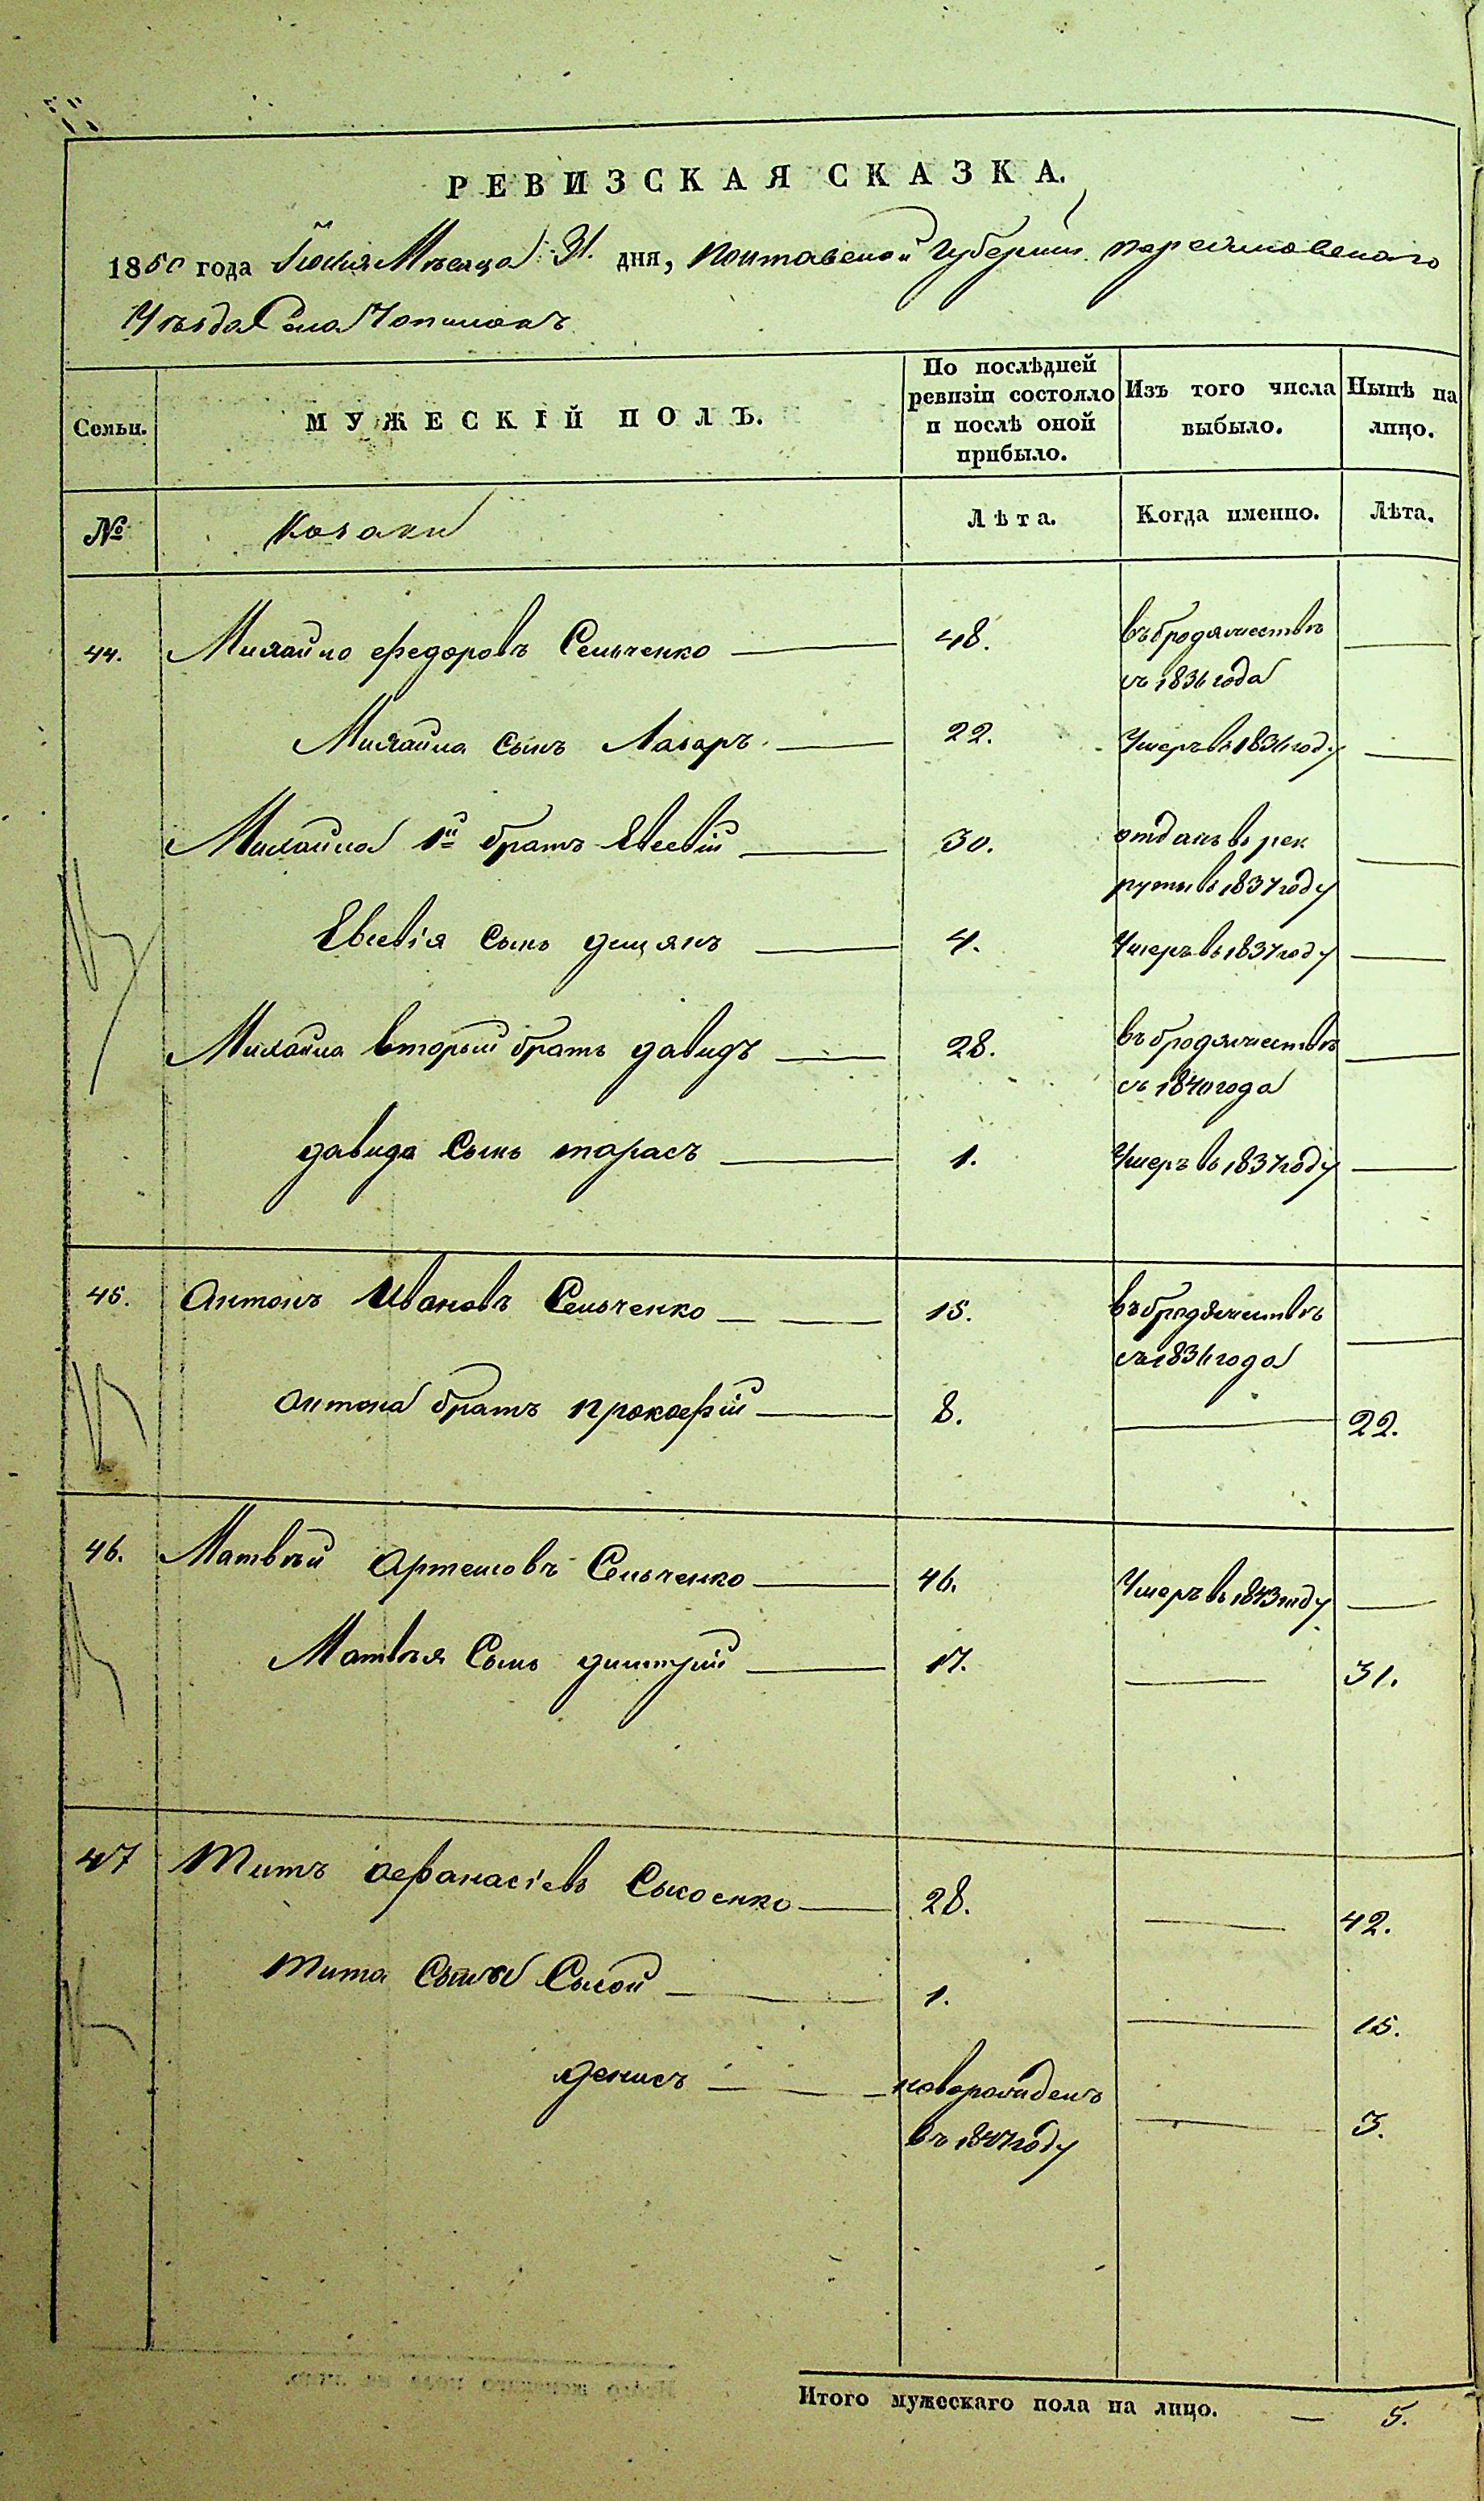 РЕВИЗСКАЯ СКАЗКА.
1850 года Июля Месяца 31. дня, Полтавской Губернии Переяславскаго
Уѣзда Села
Семьи. МУЖЕСКІЙ ПОЛЪ. По послѣдней ревизіи состояло и послѣ оной прибыло. Изъ того числа выбыло. Нынѣ на лицо.
№ Козаки Лѣта. Когда именно. Лѣта.
44. Михайло Федоровъ Семченко 48. въ бродяжествѣ
съ 1836 года
Михайла Сынъ Лазарь 22. Умеръ в 1836 году
Михайла 1й братъ Евсевій 30. отданъ в рек
руты в 1837 году
Евсевія Сынъ Демянъ 4. Умеръ в 1837 году
Михайла второй братъ давидъ 28. въ бродяжествѣ
съ 1840 года
давида Сынъ тарасъ 1. Умеръ в 1837 году
45. Антонъ Ивановъ Семченко 15. въ бродяжествѣ
съ 1836 года
Антона братъ прокофій 8. 22.
46. Матвѣй Артемовъ Семченко 46. Умеръ в 1843 году
Матвѣя Сынъ димитрій 17. 31.
47 Титъ Афанасіевъ Сысоенко 28. 42.
Тита Сыны Сысой 1. 15.
денисъ новорожденъ 3.
въ 1847 году
Итого мужескаго пола на лицо. — 5.